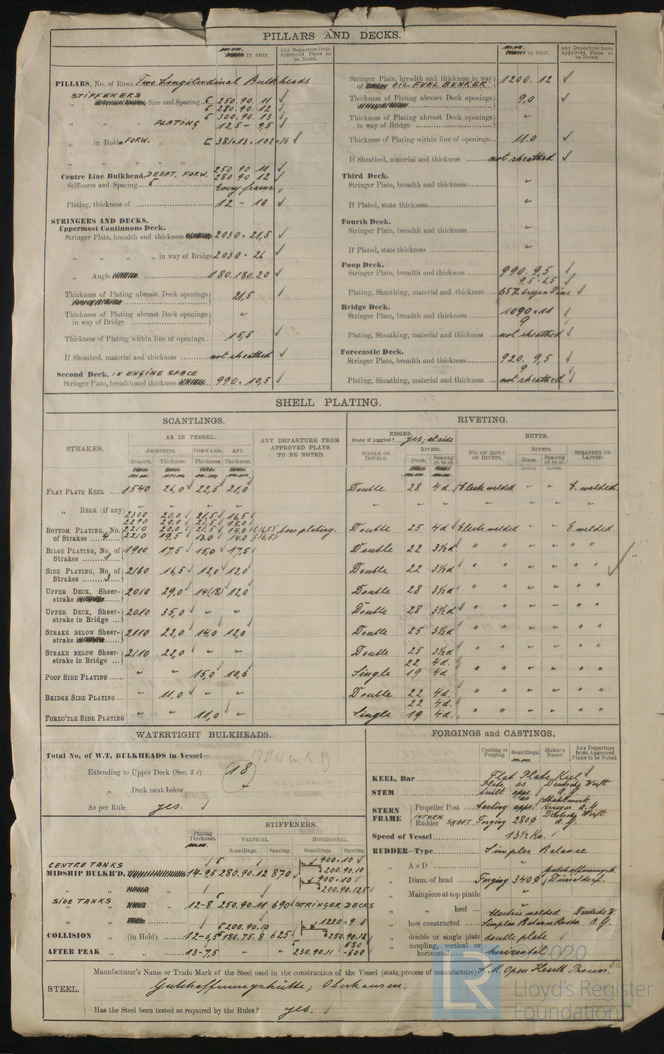 PILLARS AND DECKS.
m.m. IN SHIP.
Any Departure from Approved Plans to be Noted.
PILLARS, No. of Rows. Two Longitudinal Bulkheads
STIFFENERS
Size and Spacing 250.90.11
280.90.12
300.90.13
PLATING 12,5 - 9,5
in Hold FORW. 381.13.102.16
Centre Line Bulkhead, DEEPT. FORW. 250 90 11
280 90 12
Stiffeners and Spacing Every frame
Plating, thickness of 12 - 10
STRINGERS AND DECKS.
Uppermost Continuous Deck.
Stringer Plate, breadth and thickness 2030 . 21,5
in way of Bridge 2030 . 26
Angle 180.180.20
Thickness of Plating abreast Deck openings 21,5
Thickness of Plating abreast Deck openings in way of Bridge "
Thickness of Plating within line of openings 15,5
If Sheathed, material and thickness not sheathed
Second Deck. IN ENGINE SPACE
Stringer Plate, breadth and thickness 990 . 10,5
m.m. IN SHIP.
Any Departure from Approved Plans to be Noted.
Stringer Plate, breadth and thickness in way of OIL FUEL BUNKER 1200. 12
Thickness of Plating abreast Deck openings 9,0
Thickness of Plating abreast Deck openings in way of Bridge "
Thickness of Plating within line of openings 11.0
If Sheathed, material and thickness not sheathed
Third Deck.
Stringer Plate, breadth and thickness "
If Plated, state thickness "
Fourth Deck.
Stringer Plate, breadth and thickness "
If Plated, state thickness "
Poop Deck.
Stringer Plate, breadth and thickness 990. 9,5
Plating, Sheathing, material and thickness 9,5 - 6,5
Bridge Deck.
Stringer Plate, breadth and thickness 1090 . 11
Plating, Sheathing, material and thickness 9 not sheathed
Forecastle Deck.
Stringer Plate, breadth and thickness 920. 9,5
Plating, Sheathing, material and thickness 9 not sheathed
SHELL PLATING.
SCANTLINGS.
RIVETING.
STRAKES.
AS IN VESSEL.
ANY DEPARTURE FROM APPROVED PLANS TO BE NOTED.
AMIDSHIPS. FORWARD. AFT.
Breadth. Thickness. Thickness. Thickness.
EDGES. State if joggled? yes, at side
BUTTS.
SINGLE OR DOUBLE. RIVETS. Diam. Spacing cr. to cr.
NO. OF ROWS OF RIVETS. RIVETS. Diam. Spacing cr. to cr. STRAPPED OR LAPPED.
FLAT PLATE KEEL 1540 26,0 22,5 21,0 Double 28 4d. Electr. welded " " E. welded.
" DBLG (if any) " " " " " " " " " "
BOTTOM PLATING, No. of Strakes 4
2300 20.0 21,5 16,5
2290 20.0 21,5 15,0
2210 20.0 21,5 14,0
2210 19,5 13,0 14,0
Double 25 4d. Electr. welded " " E. welded.
BILGE PLATING, No. of Strakes 1 1900 17,5 15,0 17,5 Double 22 3½d " " " " "
SIDE PLATING, No. of Strakes 2160 16,5 12,0 12,0 Double 22 3½d. " " " " "
UPPER DECK, Sheerstrake 2010 29,0 14(18) 12,0 Double 28 3½d. " " " " "
UPPER DECK, Sheerstrake in Bridge 2010 35,0 " " Double 28 3½d. " " " " "
STRAKE BELOW Sheerstrake 2110 22,0 14,0 12,0 Double 25 3½d. " " " " "
STRAKE BELOW Sheerstrake in Bridge 2110 22,0 " " Double 25 3½d. " " " " "
POOP SIDE PLATING " " 15,0 10,6 Single 22 4d. 19 4d. " " " " "
BRIDGE SIDE PLATING " 11,0 " " Double 22 4d. " " " " "
FORE'C'TLE SIDE PLATING " " 11,0 " Single 22 4d. 19 4d. " " " " "
WATERTIGHT BULKHEADS.
Total No. of W.T. BULKHEADS in Vessel—
Extending to Upper Deck (Sec. 3 c) (18)
Deck next below "
As per Rule yes.
STIFFENERS.
Plating Thickness. m.m.
VERTICAL. HORIZONTAL.
Scantlings. Spacing. Scantlings. Spacing.
CENTRE TANKS
MIDSHIP BULKH'D, 14-9,5 280.90.12 870 900.10
200.90.10
900.10
200.90.12,5
SIDE TANKS 12-8 250.90.11 690 STRINGER DECKS
COLLISION (in Hold) 12-6,5 200.90.10 180.75.8 625 1220.9,5
250.90.12
AFTER PEAK 13-7,5 230.90.11 650 -600
FORGINGS AND CASTINGS,
Casting or Forging. Scantlings. m.m. Maker's Name. Any Departure from Approved Plans to be Noted.
KEEL, Bar Flat Plate Keel
STEM Plate as built appr. Deutsche Werft A.G.
STERN FRAME
Propeller Post Casting as appr. Stahlwerk Krieger A.G.
Rudder SHAFT Forging 280ø Deutsche Werft A.G.
Speed of Vessel 13½ Kn.
RUDDER—Type Simplex Balance
A × D "
Diam. of head Forging 340ø Düsseldorf.
Mainpiece at top pintle "
" heel "
how constructed Electric welded Simplex Balance Rudder Deutsche W. A.G.
double or single plate double plate
coupling, vertical or horizontal horizontal
STEEL.
Manufacturer's Name or Trade Mark of the Steel used in the construction of the Vessel (state process of manufacture) S.M. Open Hearth Process.
Gutehoffnungshütte, Oberhausen.
Has the Steel been tested as required by the Rules? yes.
© 2020
LR
Lloyd's Register
Foundation